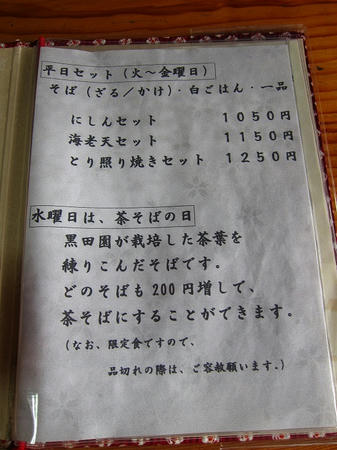 平日セット(火~金曜日)
そば(ざる/かけ)・白ごはん・一品
にしんセット 1050円
海老天セット 1150円
とり照り焼きセット 1250円
水曜日は、茶そばの日
黒田園が栽培した茶葉を
練りこんだそばです。
どのそばも200円増しで、
茶そばにすることができます。
(なお、限定食ですので、
品切れの際は、ご容赦願います。)